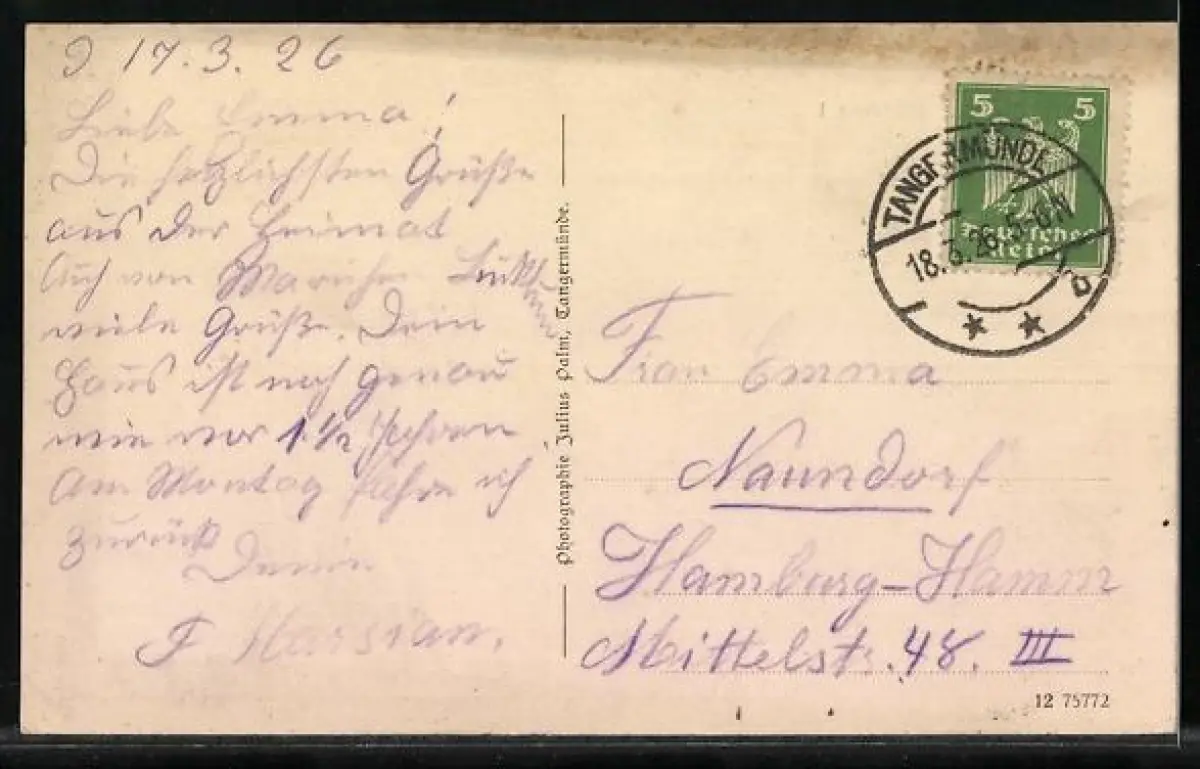 17.3.26
Liebe Emma!
Die herzlichsten Grüße
aus der Heimat
Auch von
viele Grüße. Dein
Haus ist noch genau
wie vor 1 1/2 Jahren
Am Montag fahre ich
zurück
F
Photographie Julius Palm, Tangermünde.
5 5
Deutsches
Reich
TANGERMÜNDE
18.3.26.5-6N
Frau Emma
Naundorf
Hamburg-Hamm
Mittelstr. 48. III
12 75772